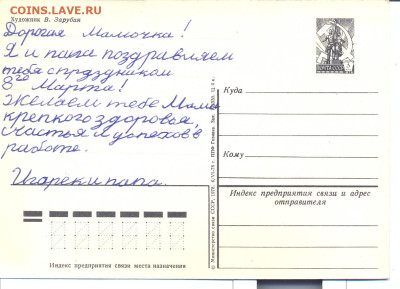 COINS.LAVE.RU
Художник В. Зарубин
Дорогая Мамочка!
Я и папа поздравляем
тебя с праздником
8го Марта!
Желаем тебе Мама
крепкого здоровья,
счастья и успехов в
работе.
Игорек и папа.
Куда
Кому
Индекс предприятия связи и адрес
отправителя
Индекс предприятия связи места назначения
© Министерство связи СССР, 1978